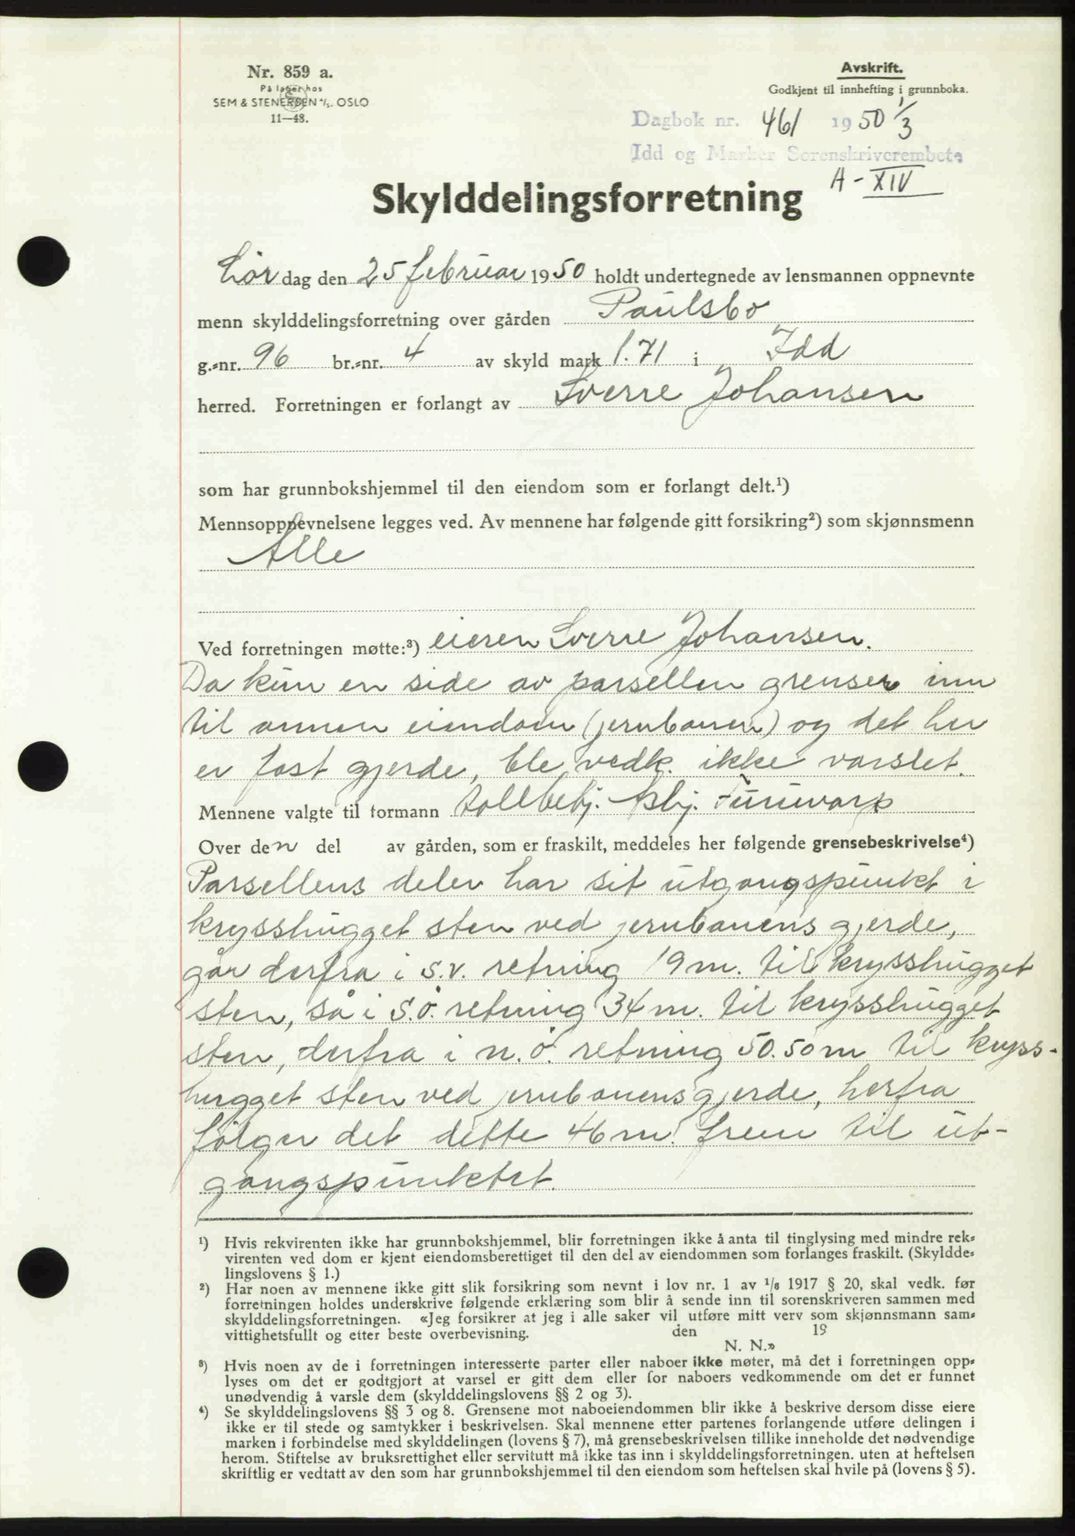 Nr. 859 a.
På lager hos
SEM & STENERSEN A/S. OSLO
11—48.
Avskrift.
Godkjent til innhefting i grunnboka.
Dagbok nr. 461 1950 1/3
Idd og Marker Sorenskriverembete
A - XIV
Skylddelingsforretning
Lør dag den 25 februar 1950 holdt undertegnede av lensmannen oppnevnte
menn skylddelingsforretning over gården Paulsbo
g.-nr. 96 br.-nr. 4 av skyld mark 1.71 i Idd
herred. Forretningen er forlangt av Sverre Johansen
som har grunnbokshjemmel til den eiendom som er forlangt delt.¹)
Mennsoppnevnelsene legges ved. Av mennene har følgende gitt forsikring²) som skjønnsmenn
Alle
Ved forretningen møtte:³) eieren Sverre Johansen.
Da kun en side av parsellen grenser inn
til annen eiendom (jernbanen) og det her
er fast gjerde, ble vedk. ikke varslet.
Mennene valgte til formann tollbetj. Asbj. Furuvarp
Over den del av gården, som er fraskilt, meddeles her følgende grensebeskrivelse⁴)
Parsellens deler har sit utgangspunkt i
krysshugget sten ved jernbanens gjerde,
går derfra i s.v. retning 19 m. til krysshugget
sten, så i s.ø. retning 34 m. til krysshugget
sten, derfra i n.ø. retning 50.50 m til kryss-
hugget sten ved jernbanens gjerde, herfra
følger det dette 46 m. frem til ut-
gangspunktet.
¹) Hvis rekvirenten ikke har grunnbokshjemmel, blir forretningen ikke å anta til tinglysing med mindre rek-
virenten ved dom er kjent eiendomsberettiget til den del av eiendommen som forlanges fraskilt. (Skyldde-
lingslovens § 1.)
²) Har noen av mennene ikke gitt slik forsikring som nevnt i lov nr. 1 av 1/6 1917 § 20, skal vedk. før
forretningen holdes underskrive følgende erklæring som blir å sende inn til sorenskriveren sammen med
skylddelingsforretningen. «Jeg forsikrer at jeg i alle saker vil utføre mitt verv som skjønnsmann sam-
vittighetsfullt og etter beste overbevisning. den 19
N. N.»
³) Hvis noen av de i forretningen interesserte parter eller naboer ikke møter, må det i forretningen opp-
lyses om det er godtgjort at varsel er gitt dem eller for naboers vedkommende om det er funnet
unødvendig å varsle dem (skylddelingslovens §§ 2 og 3).
⁴) Se skylddelingslovens §§ 3 og 8. Grensene mot naboeiendommen blir ikke å beskrive dersom disse eiere
ikke er til stede og samtykker i beskrivelsen. Skal mennene etter partenes forlangende utføre delingen i
marken i forbindelse med skylddelingen (lovens § 7), må grensebeskrivelsen tillike inneholde det nødvendige
herom. Stiftelse av bruksrettighet eller servitutt må ikke tas inn i skylddelingsforretningen. uten at heftelsen
skriftlig er vedtatt av den som har grunnbokshjemmel til den eiendom som heftelsen skal hvile på (lovens § 5).